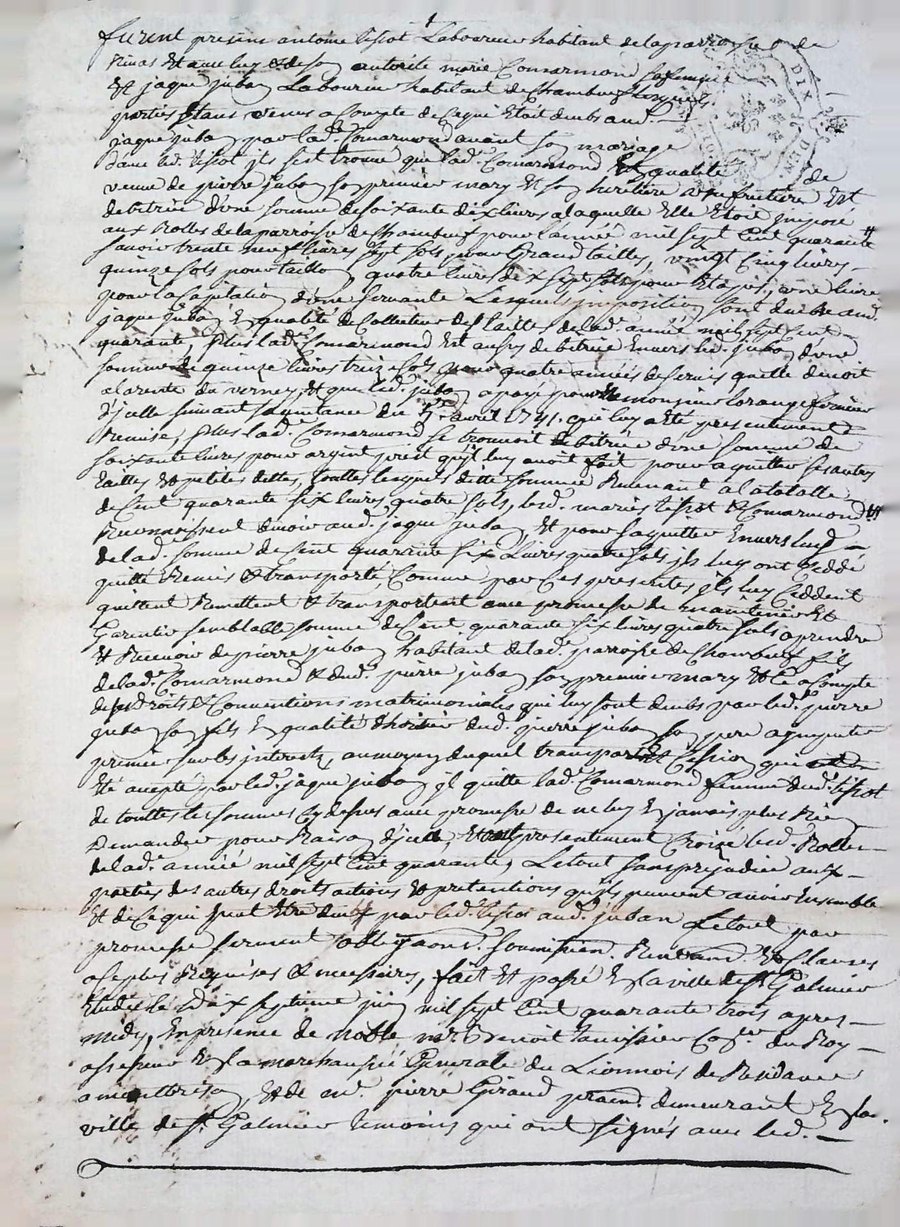 furent presens antoine tissot Laboureur habitant de la parroisse de
Rivas Et avec luy & de son autorité marie Comarmond sa femme
Et jaque juban Laboureur habitant de Chambeuf Lesquels
parties Etans venus a Compte de Ce qui Etoit deub aud.
jaque juban par lad. Comarmond avant son mariage
dans led. tissot jls s'est trouvé que lad. Comarmond En qualité de
veuve de pierre juban son premier mary Et son heritiere usufruitiere Est
debitrice d'une somme de soixante dix livres a laquelle Elle Etoit jmposé
aux Rolles de la parroisse de Chambeuf pour l'année mil sept Cent quarante
savoir trente neuf livres sept sols pour Grand tailles, vingt Cinq livres
quinze sols pour taillon quatre livres dix sept sols pour Etapes, une livre
pour la Capitation d'une servante Lesquels jmposition sont deube aud.
jaque juban En qualité de Collecteur des tailles de lad. année mil sept cent
quarante, plus lad. Comarmond Est aussy debitrice Envers led. juban d'une
somme de quinze livres treize sols pour quatre années de servis qu'elle devoit
a la rente du verney, Et que led. juban a payé pour Elle a monsieur Lorange fermier
d'jcelle suivant sa quitance du 7. avril 1741. qui luy a Eté presentement
Remise, plus lad. Comarmond se trouvoit debitrice d'une somme de
soixante livres pour argent prest qu'jl luy avoit fait pour aquitter ses autres
tailles Et petites dettes, touttes lesquels ditte sommes Revenant a la totalle
de Cent quarante six livres quatre sols, lesd. mariés tissot & Comarmond
Reconnoissent devoir aud. jaque juban Et pour s'aquitter Envers luy
de lad. somme de Cent quarante six Livres quatre sols jls luy ont Ceddé
quitté Remis & transporté Comme par Ces presentes jls luy Ceddent
quittent Remettent & transportent avec promesse de maintenir Et
Garentir semblable somme de Cent quarante six livres quatre sols a prendre
Et Recevoir de pierre juban habitant de lad. parroisse de Chambeuf fils
de lad. Comarmond & dud. pierre juban son premier mary Et Ce a Compte
de ses droits & Conventions matrimoniales qui luy sont deubs par led. pierre
juban son fils En qualité d'heritier dud. pierre juban son pere a jmputer
premier sur les jnterets, au moyen duquel transport Et Cession qui
Eté acepté par led. jaque juban jl quitte lad. Comarmond femme dud. tissot
de touttes les sommes Cy dessus avec promesse de ne luy En jamais plus Rien
Demander pour Raison d'jcelle, Et a presentement Croisé lesd. Rolles
de lad. année mil sept Cent quarante, Le tout sans prejudice aux
parties des autres droits actions Et pretentions qu'jls peuvent avoir Ensemble
Et de Ce qui peut Etre deub par led. tissot aud. juban Le tout par
promesse serment obligaons. soumission. Renond. Et Clauses
a Ce plus Requises & necessaires, fait Et passé En la ville de St. Galmier
Etude le dix septieme juin mil sept Cent quarante trois apres
midy, En presence de noble mr. Benoit Conser. du Roy
assesseur En la marechaussée Generale du Lionnois de Residance
a montbrison, Et de mr. pierre Giraud pratn. demeurant En la
ville de St. Galmier temoins qui ont signés avec led.